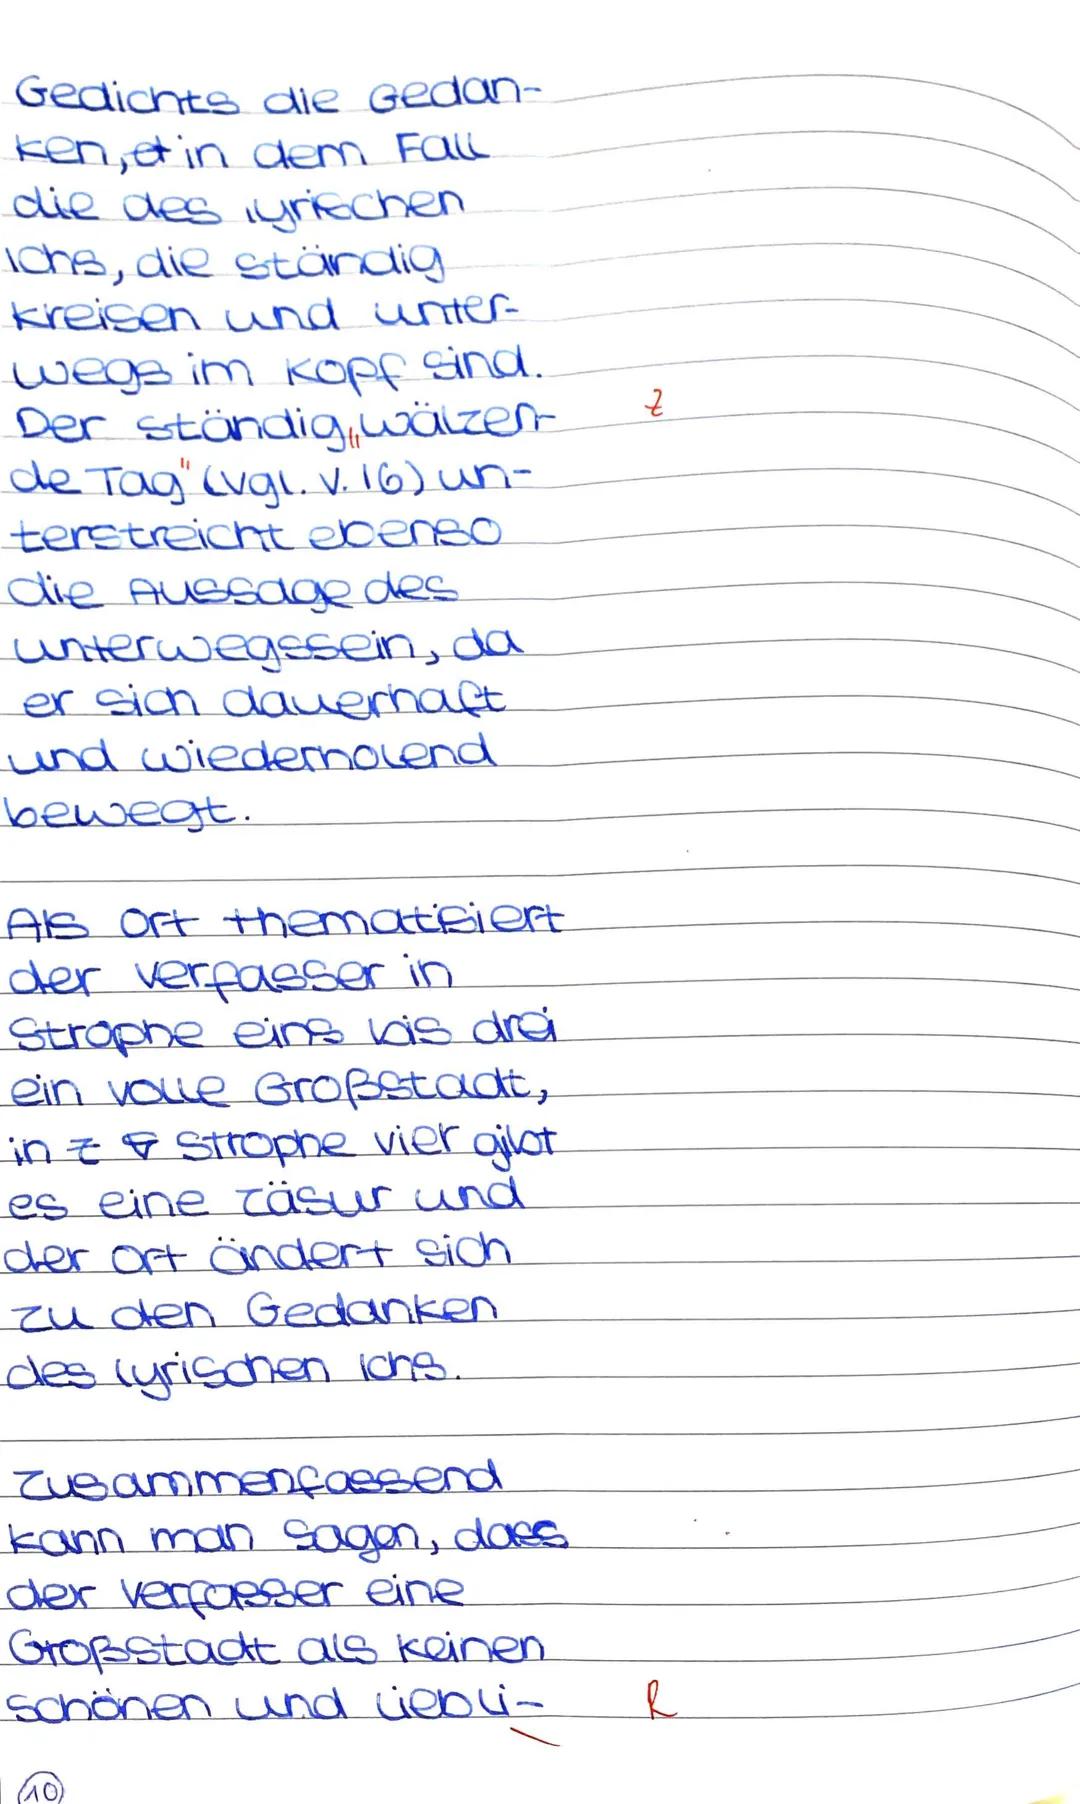 Gedichts die Gedan-
ken, in dem Fall
die des lyrischen
Ichs, die ständig
kreisen und unter-
wegs im Kopf sind.
Der ständig „wälzen- Z
de Tag" (vgl. V. 16) un-
terstreicht ebenso
die Aussage des
unterwegssein, da
er sich dauerhaft
und wiederholend
bewegt.
Als Ort thematisiert
der Verfasser in
Strophe eins bis drei
ein volle Großstadt,
in Strophe vier gibt
es eine Zäsur und
der Ort ändert sich
zu den Gedanken
des lyrischen Ichs.
Zusammenfassend
kann man sagen, dass
der Verfasser eine
Großstadt als keinen
schönen und liebli- R
10